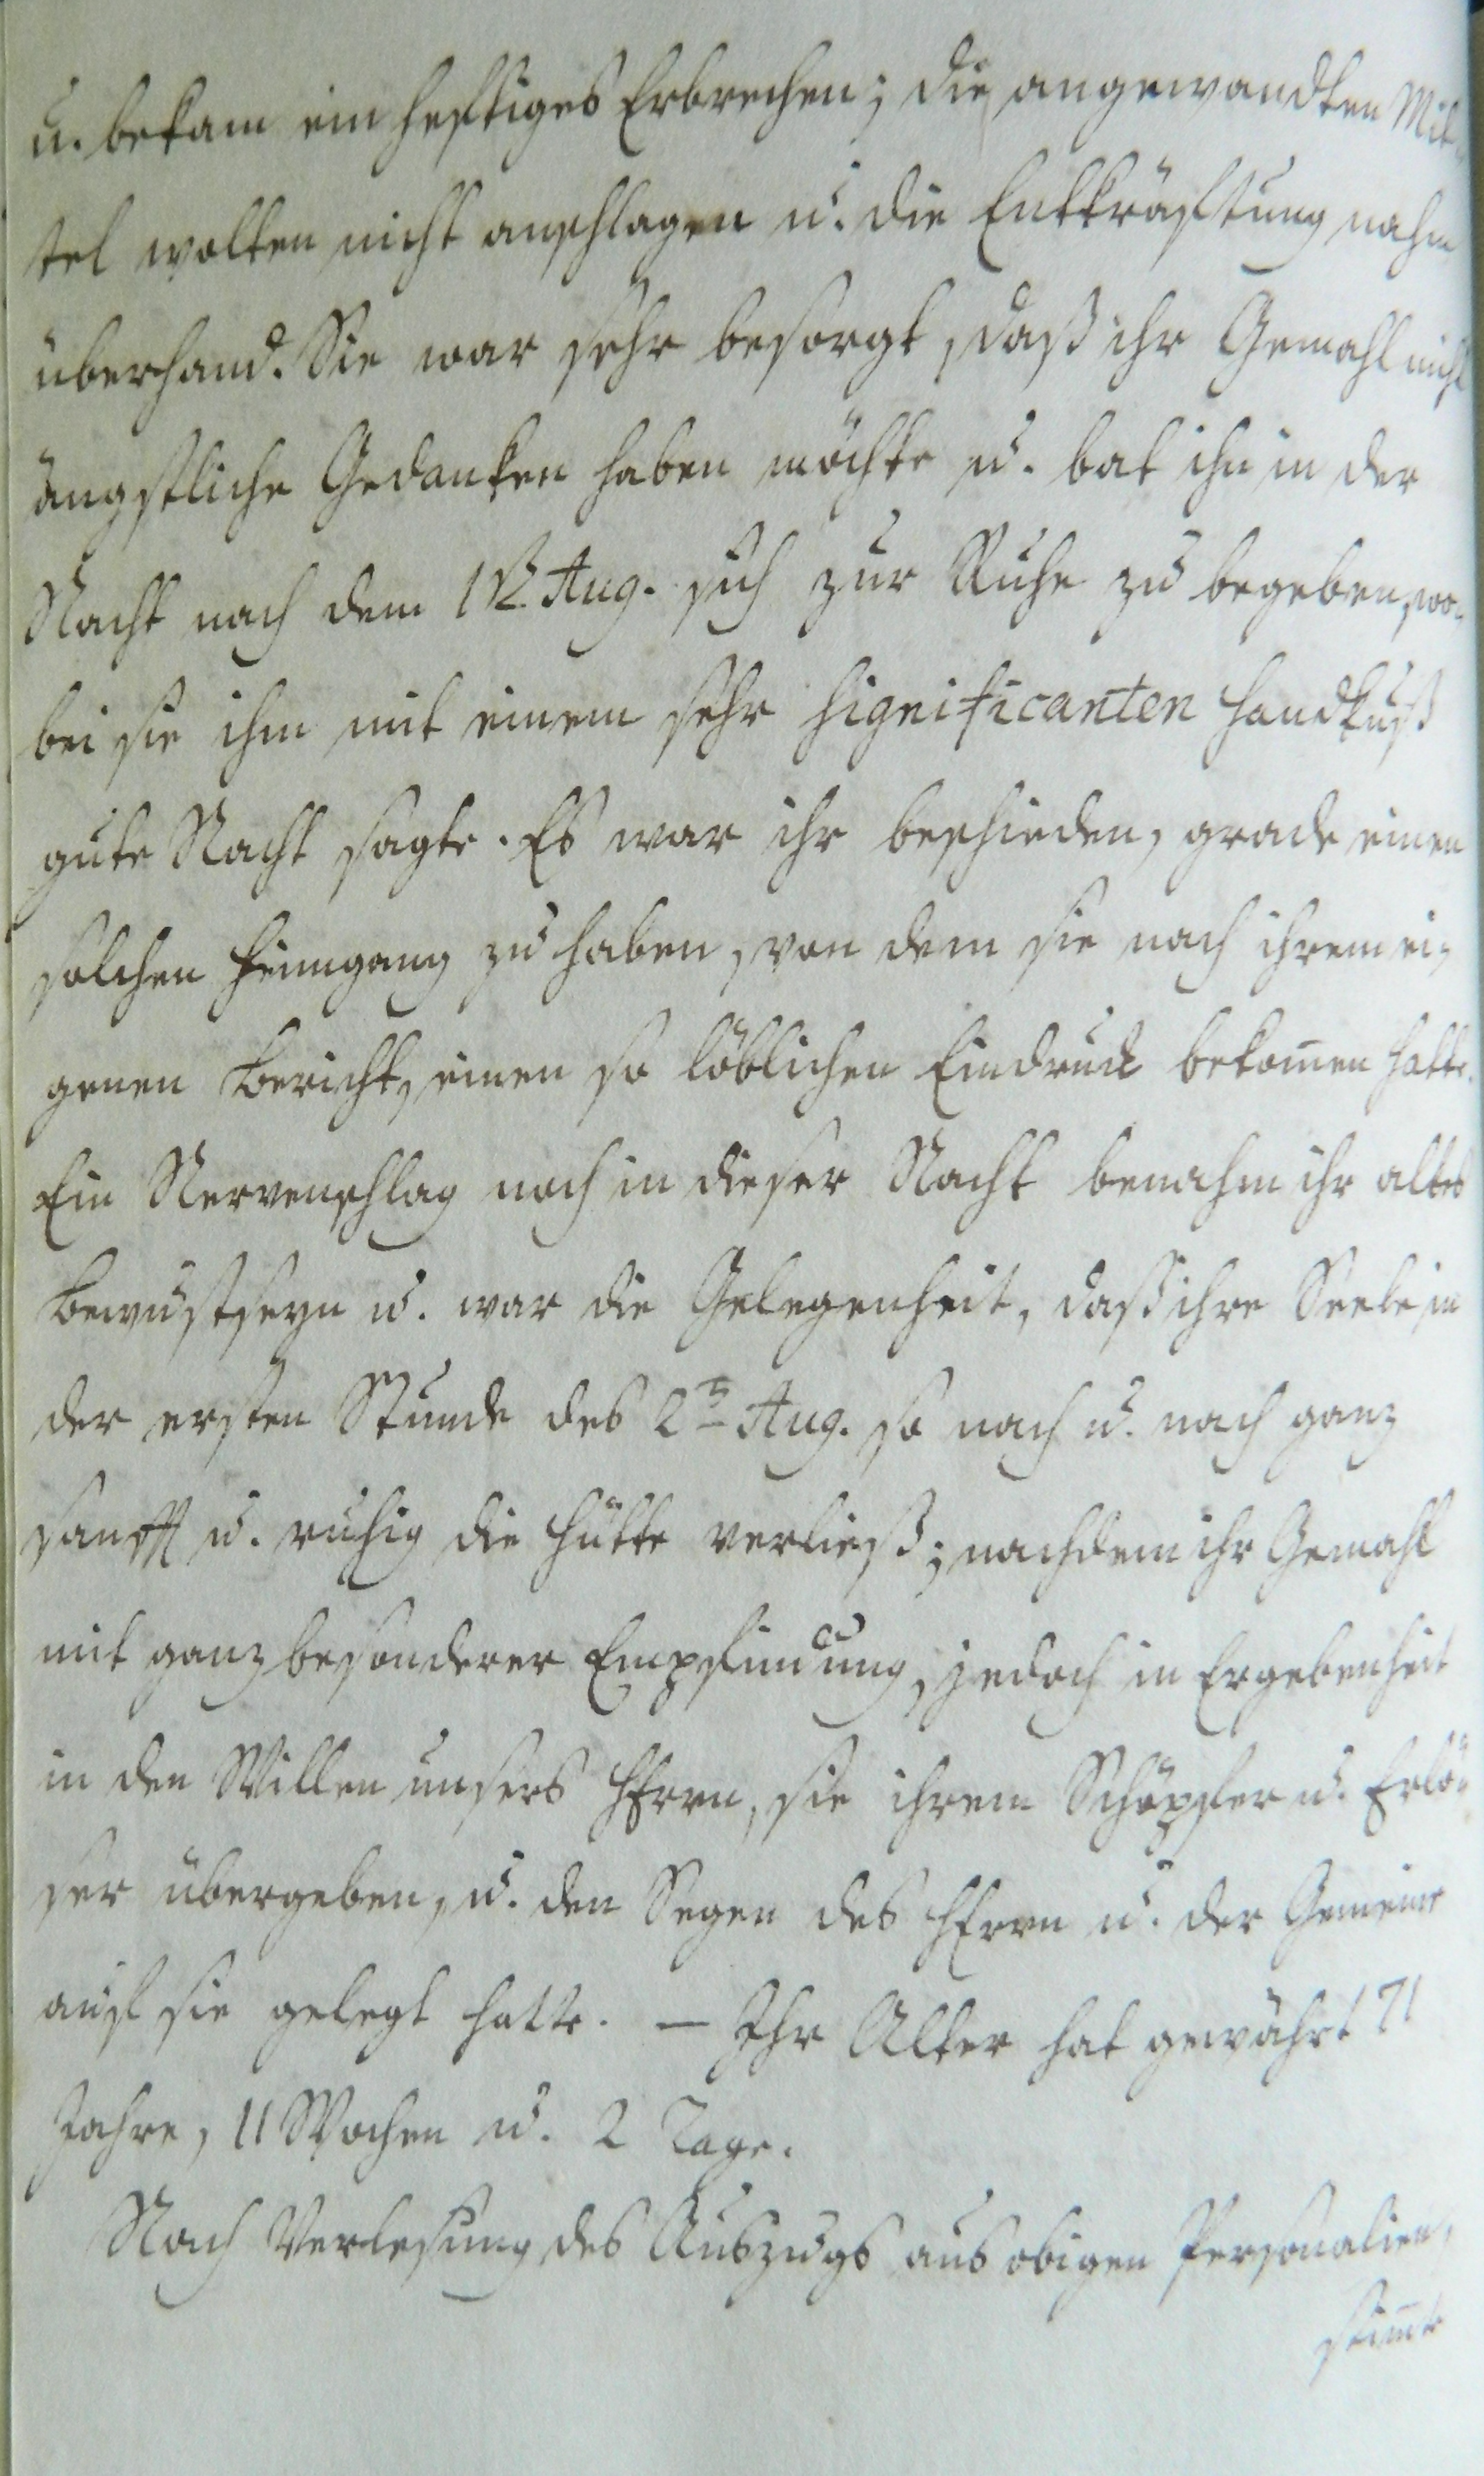 u. bekam ein heftiges Erbrechen; die angewandten Mit-
tel wolten nicht anschlagen u. die Entkräftung nahm
überhand. Sie war sehr besorgt, daß ihr Gemahl nicht
ängstliche Gedanken haben möchte u. bat ihn in der
Nacht nach dem 1sten Aug. sich zur Ruhe zu begeben, wo-
bei sie ihm mit einem sehr significanten Handkuß
gute Nacht sagte. Es war ihr beschieden, grade einen
solchen Heimgang zu haben, von dem sie nach ihrem ei-
genen Bericht, einen so löblichen Eindruck bekom̄en hatte.
Ein Nervenschlag noch in dieser Nacht benahm ihr alles
Bewustseyn u. war die Gelegenheit, daß ihre Seele in
der ersten Stunde des 2ten Aug. so nach u. nach ganz
sanfft u. ruhig die Hütte verließ; nachdem ihr Gemahl
mit ganz besonderer Empfindung, jedoch in Ergebenheit
in den Willen unsers HErrn, sie ihrem Schöpfer u. Erlö-
ser übergeben, u. den Segen des HErrn u. der Gemeine
auf sie gelegt hatte. – Ihr Alter hat gewährt 71
Jahre, 11 Wochen u. 2 Tage.
Nach Verlesung des Auszugs aus obigen Personalien,
stim̄te